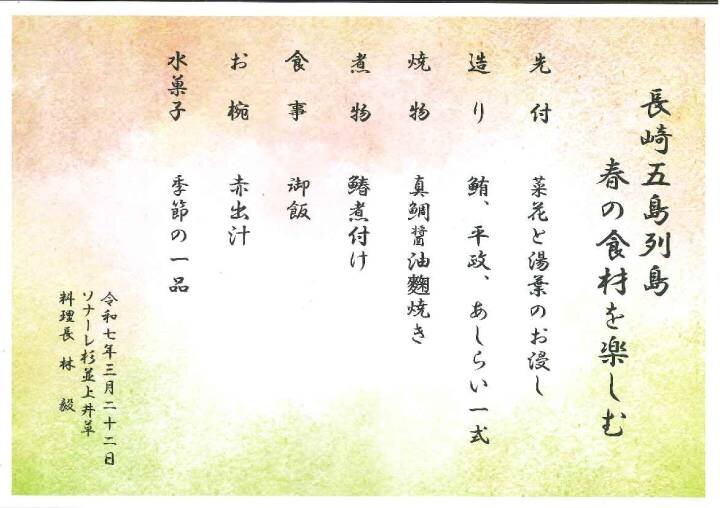 長崎五島列島
春の食材を楽しむ
先付 菜花と湯葉のお浸し
造り 鮪、平政、あしらい一式
焼物 真鯛醤油麹焼き
煮物 鰆煮付け
食事 御飯
お椀 赤出汁
水菓子 季節の一品
令和七年三月二十二日
ソナーレ杉並上井草
料理長 林 毅